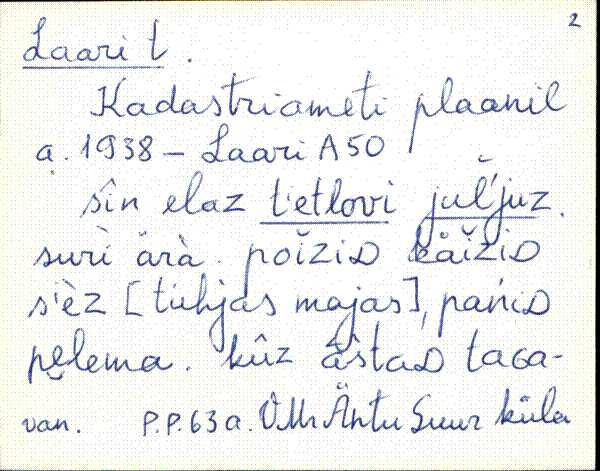 2
Laari t.
Kadastriameti plaanil
a. 1938 – Laari A50
sîn elaz t́etlovi juĺjuz.
suri ärà. poĭzid kåĭzid
s'èz [tühjas majas], pańid
pęlema. kûz âstad taga-
van. P.P. 63 a. VMr Äntu Suur küla